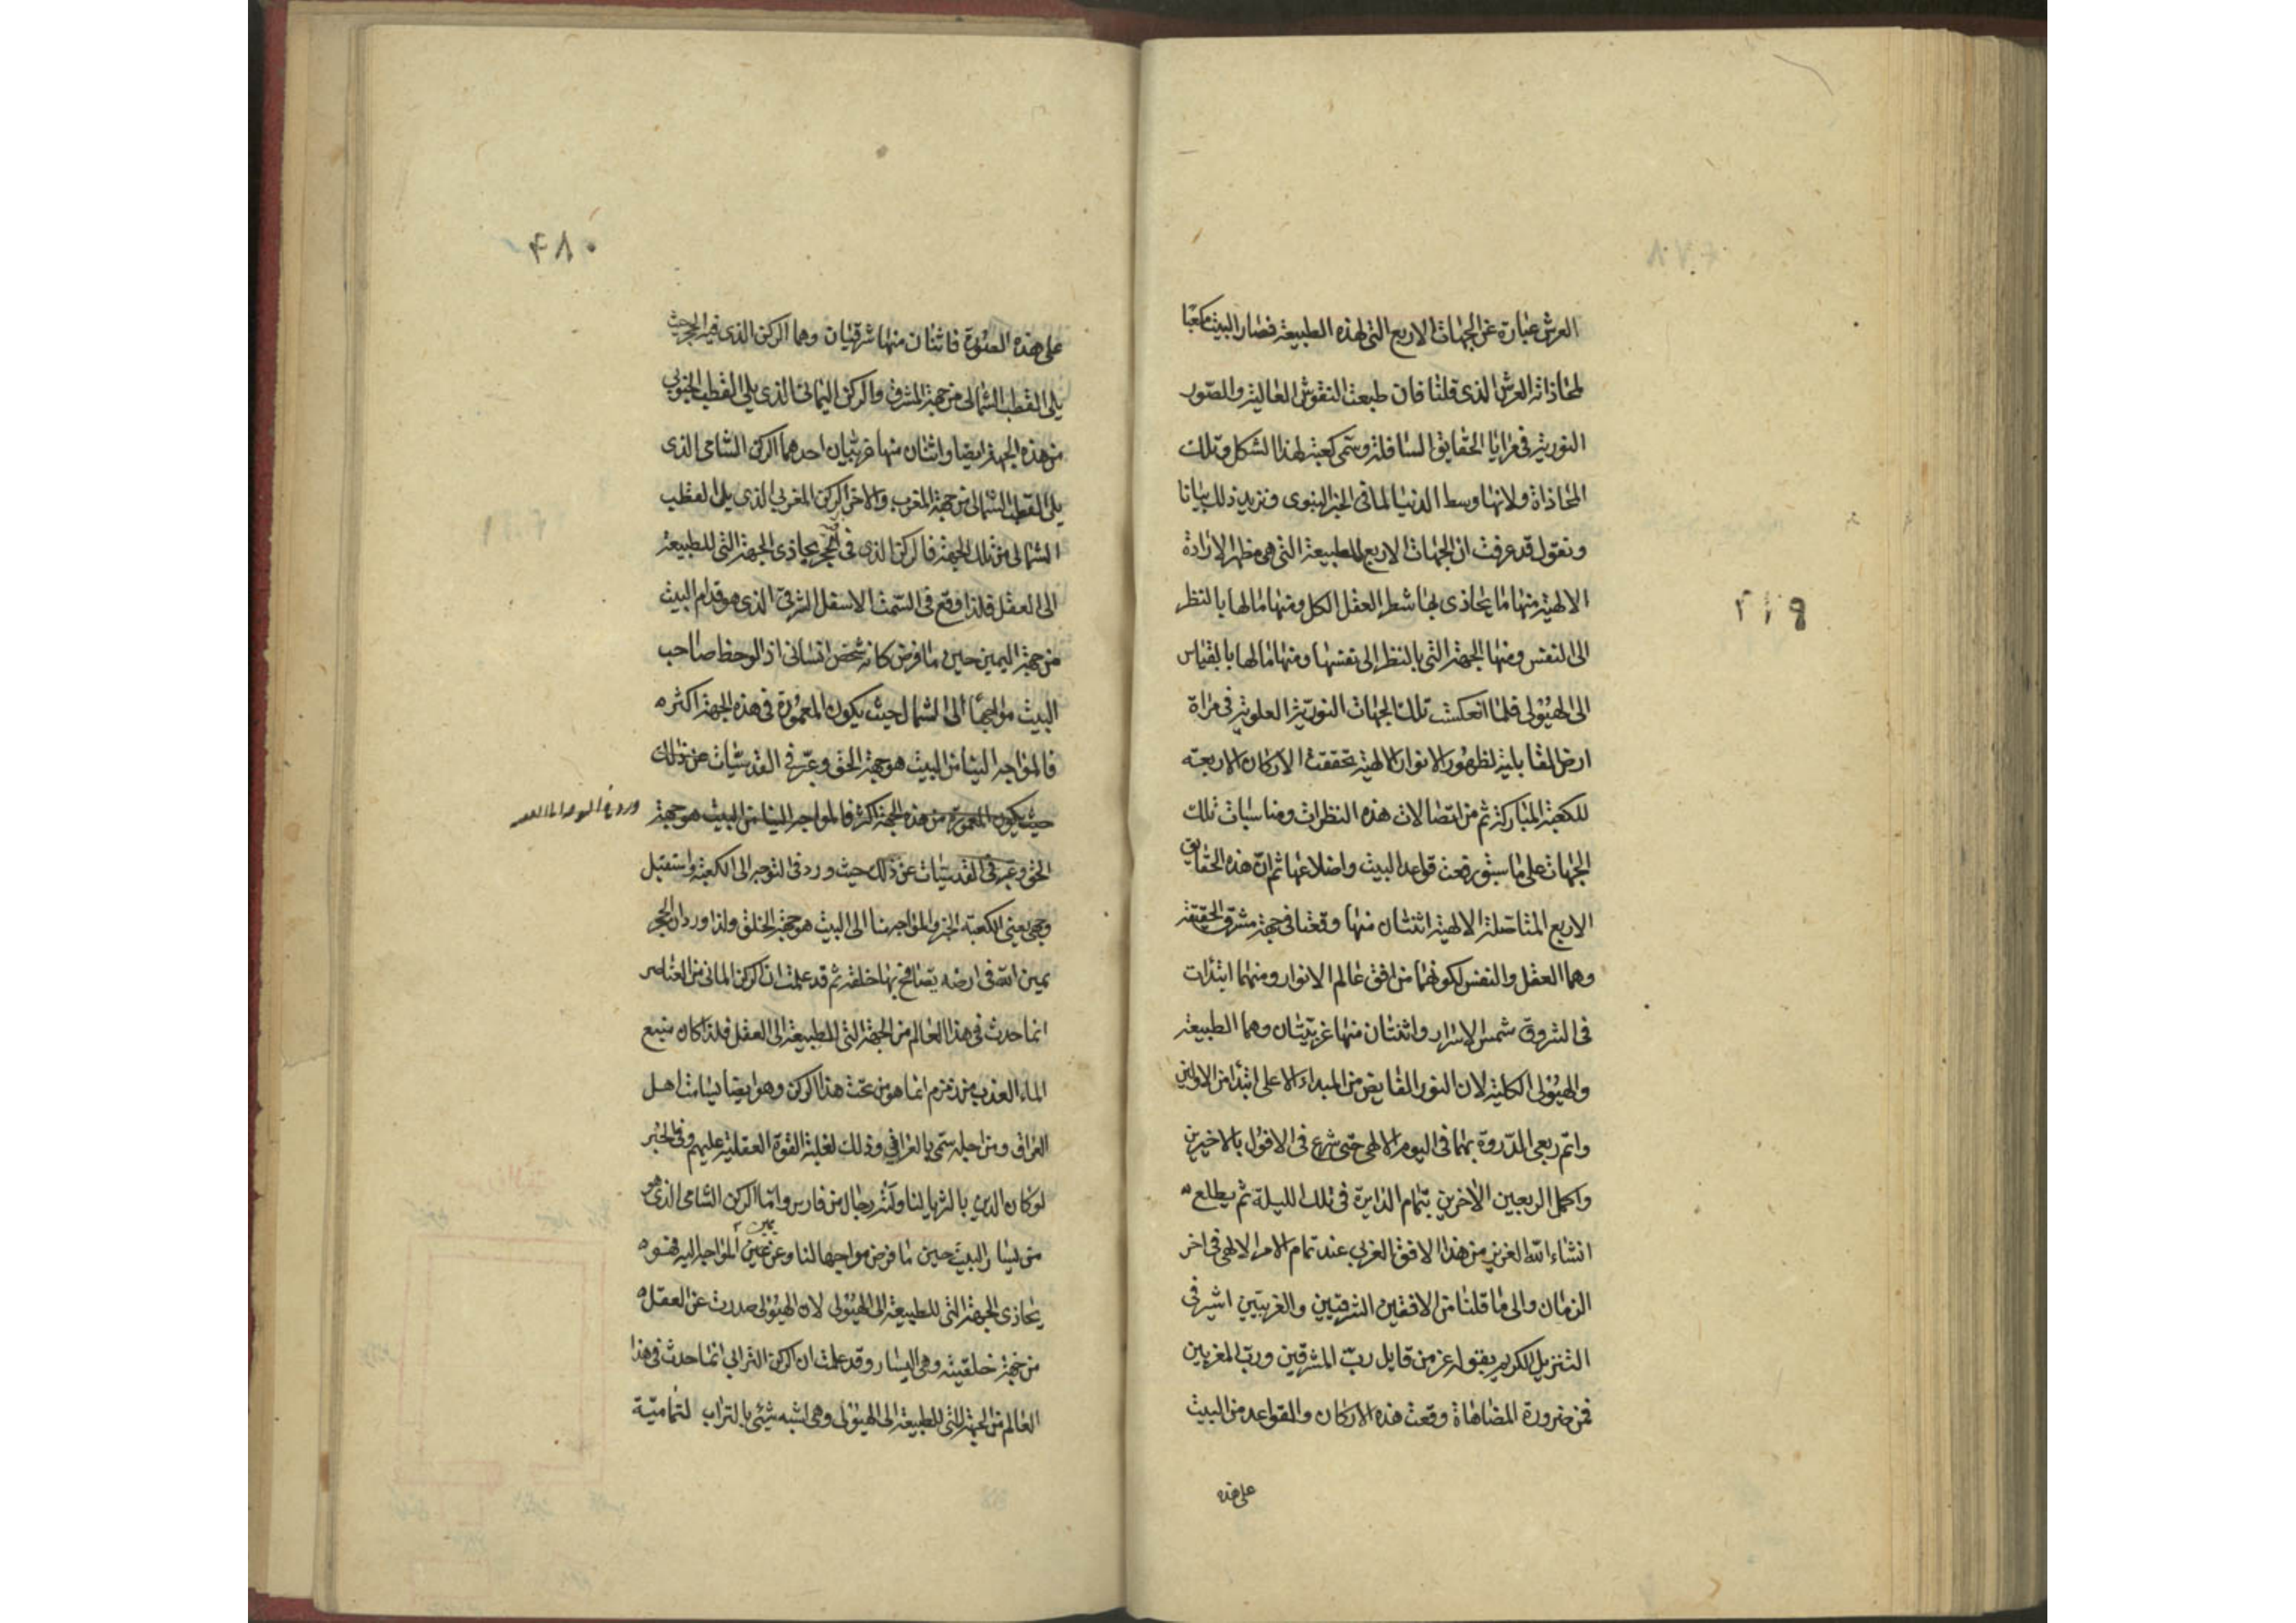 العرش عبارة عن الجهات الاربع التى لهذه الطبيعة فصار البيت مكعبا
لمحاذاته العرش الذى قلنا فان طبعت النقوش العالية والصور
النورية فى مرايا الحقايق السافلة وسمى كعبة لهذا الشكل وتلك
المحاذاة ولانها وسط الدنيا لما فى الخبر النبوى ونزيد ذلك بيانا
ونقول قد عرفت ان الجهات الاربع للطبيعة التى هى مظهر الارادة
الالهية منها ما يحاذى بها شطر العقل الكل ومنها ما لها بالنظر
الى النفس ومنها الجهة التى بالنظر الى نفسها ومنها ما لها بالقياس
الى الهيولى فلما انعكست تلك الجهات النورية العلوية فى مراة
ارض القابلية لظهور الانوار الالهية تحققت الاركان الاربعة
للكعبة المباركة ثم من اتصالات هذه النظرات ومناسبات تلك
الجهات على ما سبق رفعت قواعد البيت واضلاعها ثم ان هذه الحقايق
الاربع المتاصلة الالهية اثنتان منها وقعتا فى جهة مشرق الحقيقة
وهما العقل والنفس لكونهما من افق عالم الانوار ومنهما ابتدات
فى الشروق شمس الاسرار واثنتان منها غربيتان وهما الطبيعة
والهيولى الكلية لان النور الفايض من المبداء الاعلى ابتدا من الاولين
واتم ربعى الدورة بهما فى اليوم الالهى حتى شرع فى الافول بالاخيرين
واكمل الربعين الاخرين بتمام الدايرة فى تلك الليلة ثم يطلع
انشاء الله العزيز من هذا الافق الغربى عند تمام الامر الالهى فى اخر
الزمان والى ما قلنا من الافقين الشرقيين والغربيين اشير فى
التنزيل الكريم بقوله عز من قايل رب المشرقين ورب المغربين
فمن ضرورة المضاهاة وقعت هذه الاركان والقواعد من البيت
على هذه
٢١٩
٤٨٠
على هذه الصورة فاثنان منها شرقيان وهما الركن الذى فيه الحجر حيث
يلى القطب الشمالى من جهة المشرق والركن اليمانى الذى يلى القطب الجنوبى
من هذه الجهة ايضا واثنان منها غربيان احدهما الركن الشامى الذى
يلى القطب الشمالى من جهة المغرب والاخر الركن المغربى الذى يلى القطب
الشمالى من تلك الجهة فالركن الذى فيه الحجر يحاذى الجهة التى للطبيعة
الى العقل فلذا وقع فى السمت الاسفل الشرقى الذى هو قدام البيت
من جهة اليمين حين ما فرض كانه شخص انسانى اذ الوحظ صاحب
البيت مواجها الى الشمال حيث يكون المعمورة فى هذه الجهة اكثر
فالمواجه الينا من البيت هو جهة الحق وعبر فى القدسيات عن ذلك
حيث يكون المعمورة من هذه الجهة اكثر فالمواجه الينا من البيت هو جهة
الحق وعبر فى القدسيات عن ذلك حيث ورد فى التوجه الى الكعبة واستقبل
وجهى يعنى الكعبة الخ والمواجه منا الى البيت هو جهة الخلق ولذا ورد ان الحجر
يمين الله فى ارضه يصافح بها خلقه ثم قد علمت ان الركن المائى من العناصر
انما حدث فى هذا العالم من الجهة التى للطبيعة الى العقل فلذا كان منبع
الماء العذب من زمزم انما هو من تحت هذا الركن وهو ايضا يسامت اهل
العراق ومن اجله سمى بالعراقى وذلك لغلبة القوة العقلية عليهم وفى الخبر
لو كان الدين بالثريا لناولته رجال من فارس واما الركن الشامى الذى هو
من يسار البيت حين ما فرض مواجها لنا وعن يمين المواجه اليه فهو
يحاذى الجهة التى للطبيعة الى الهيولى لان الهيولى صدرت عن العقل
من جهة خلقيته وهى اليسار وقد علمت ان الركن الترابى انما حدث فى هذا
العالم من الجهة التى للطبيعة الى الهيولى وهى اشبه شيئى بالتراب لتمامية